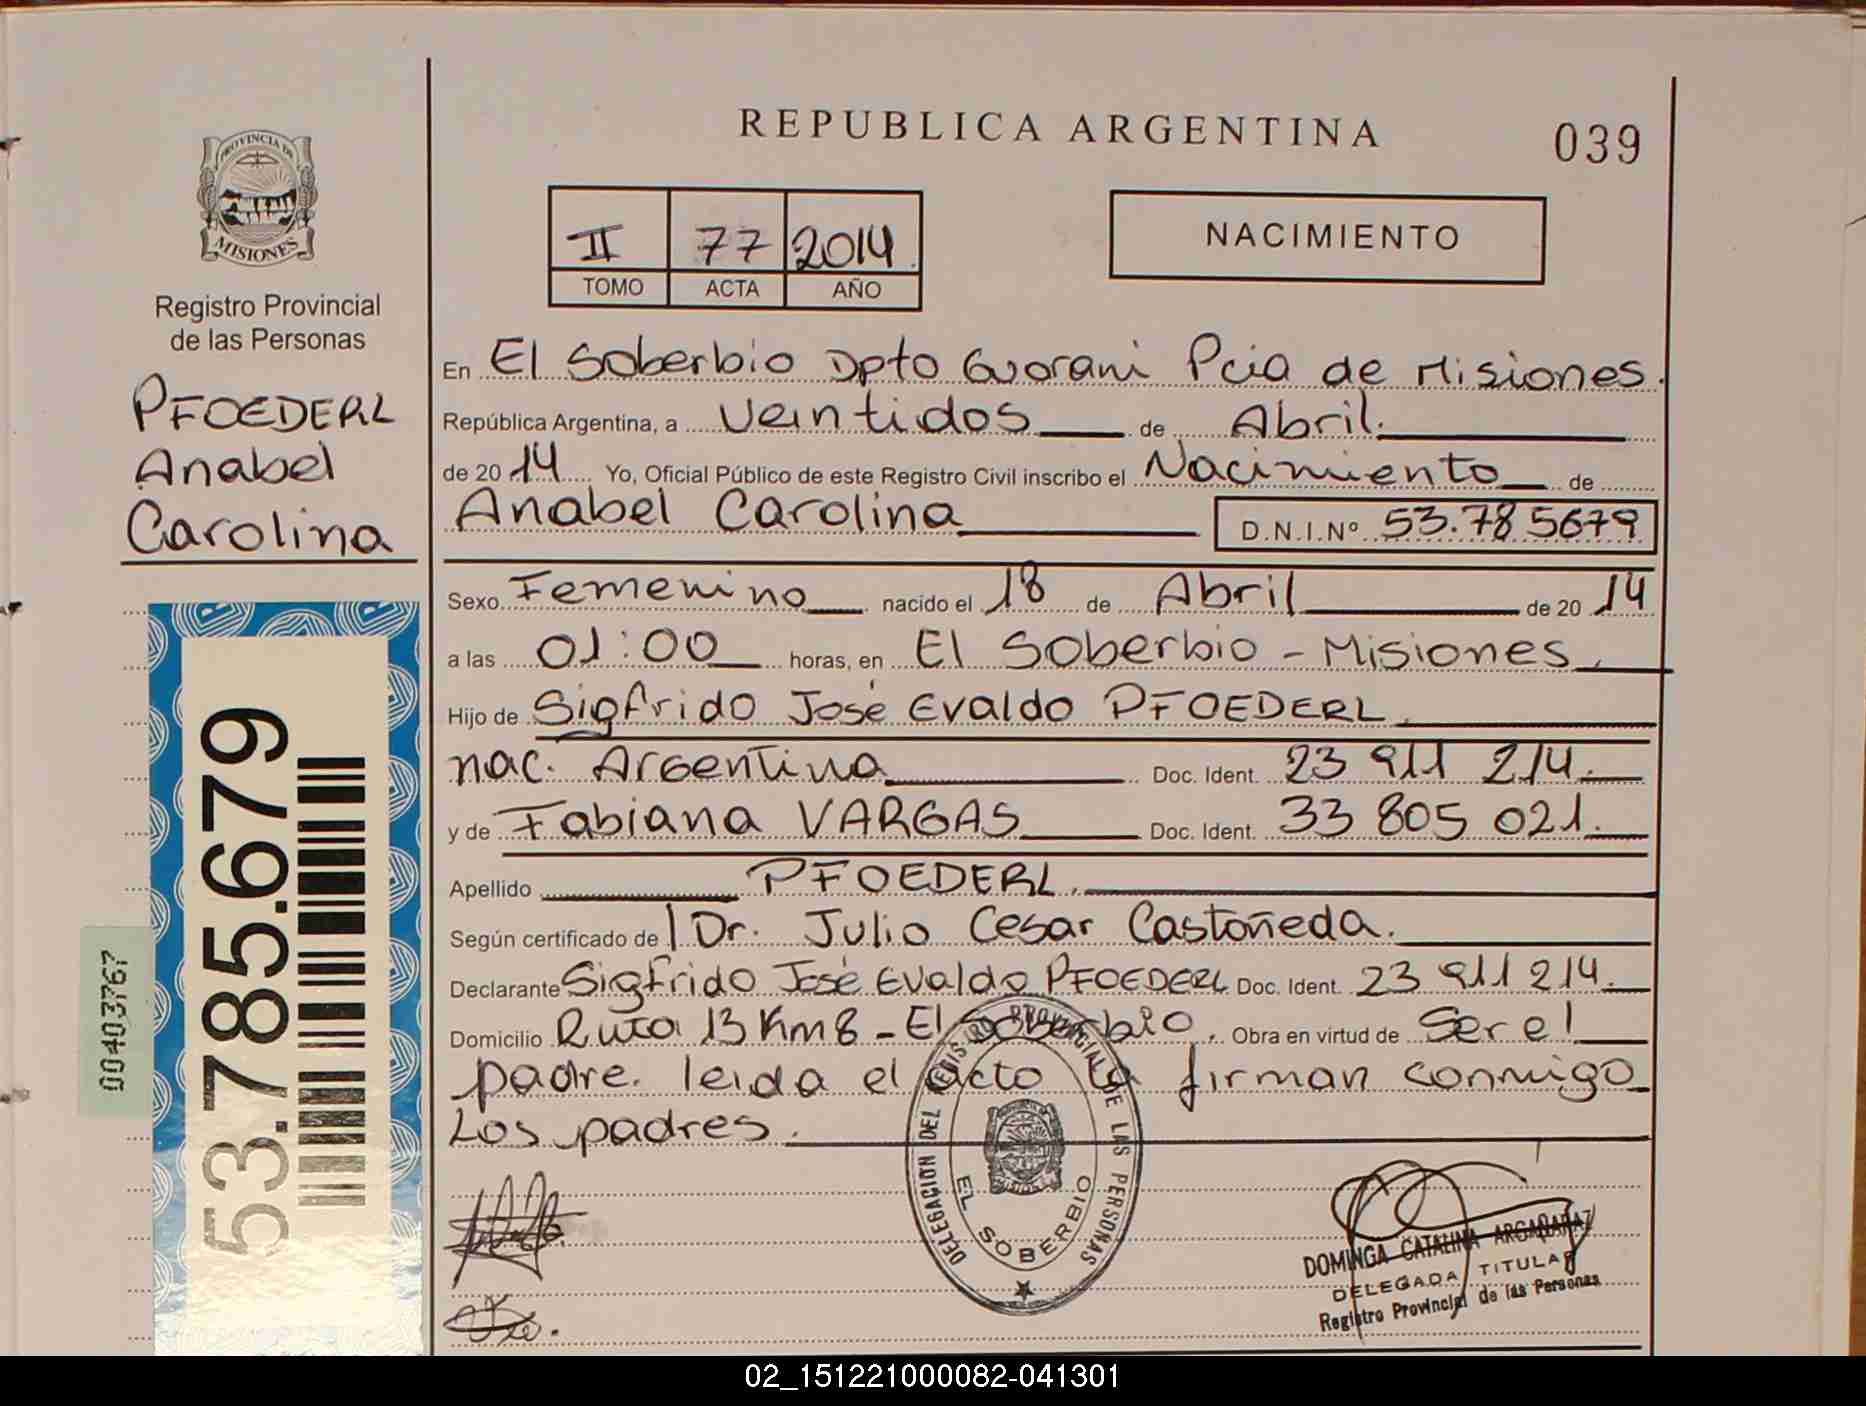 REPUBLICA ARGENTINA
039
PROVINCIA DE
MISIONES
Registro Provincial
de las Personas
PFOEDERL
Anabel
Carolina
53.785.679
00403767
II 77 2014.
TOMO ACTA AÑO
NACIMIENTO
En El Soberbio Dpto Guarani Pcia de Misiones.
República Argentina, a Veintidos de Abril.
de 20 14 Yo, Oficial Público de este Registro Civil inscribo el Nacimiento de
Anabel Carolina D.N.I.Nº 53.785679
Sexo Femenino nacido el 18 de Abril de 20 14
a las 01:00 horas, en El Soberbio - Misiones.
Hijo de Sigfrido José Evaldo PFOEDERL.
nac. Argentina Doc. Ident. 23 911 214.
y de Fabiana VARGAS Doc. Ident. 33 805 021.
Apellido PFOEDERL.
Según certificado de Dr. Julio Cesar Castañeda.
Declarante Sigfrido José Evaldo PFOEDERL Doc. Ident. 23 911 214.
Domicilio Ruta 13 Km 8 - El Soberbio. Obra en virtud de Ser el
padre. leida el acto la firman conmigo
Los padres.
DELEGACION DEL REGISTRO PROVINCIAL DE LAS PERSONAS
EL SOBERBIO
DOMINGA CATALINA ARGAÑARAZ
DELEGADA TITULAR
Registro Provincial de las Personas
02_151221000082-041301